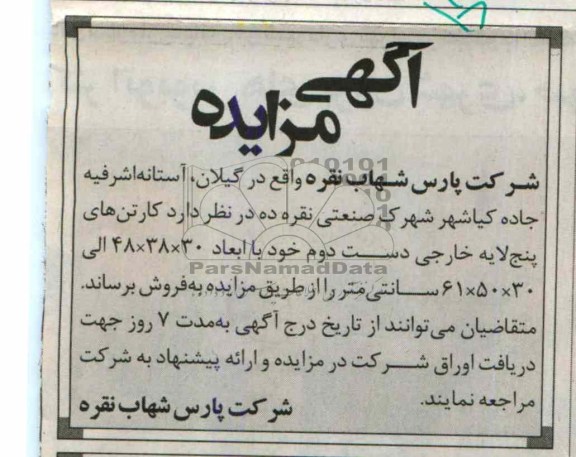 آگهی
مزایده
شرکت پارس شهاب نقره واقع در گیلان، آستانه‌اشرفیه
جاده کیاشهر شهرک صنعتی نقره ده در نظر دارد کارتن‌های
پنج‌لایه خارجی دست دوم خود با ابعاد ۳۰×۳۸×۴۸ الی
۳۰×۵۰×۶۱ سانتی‌متر را از طریق مزایده به‌فروش برساند.
متقاضیان می‌توانند از تاریخ درج آگهی به‌مدت ۷ روز جهت
دریافت اوراق شرکت در مزایده و ارائه پیشنهاد به شرکت
مراجعه نمایند.
شرکت پارس شهاب نقره
ParsNamadData